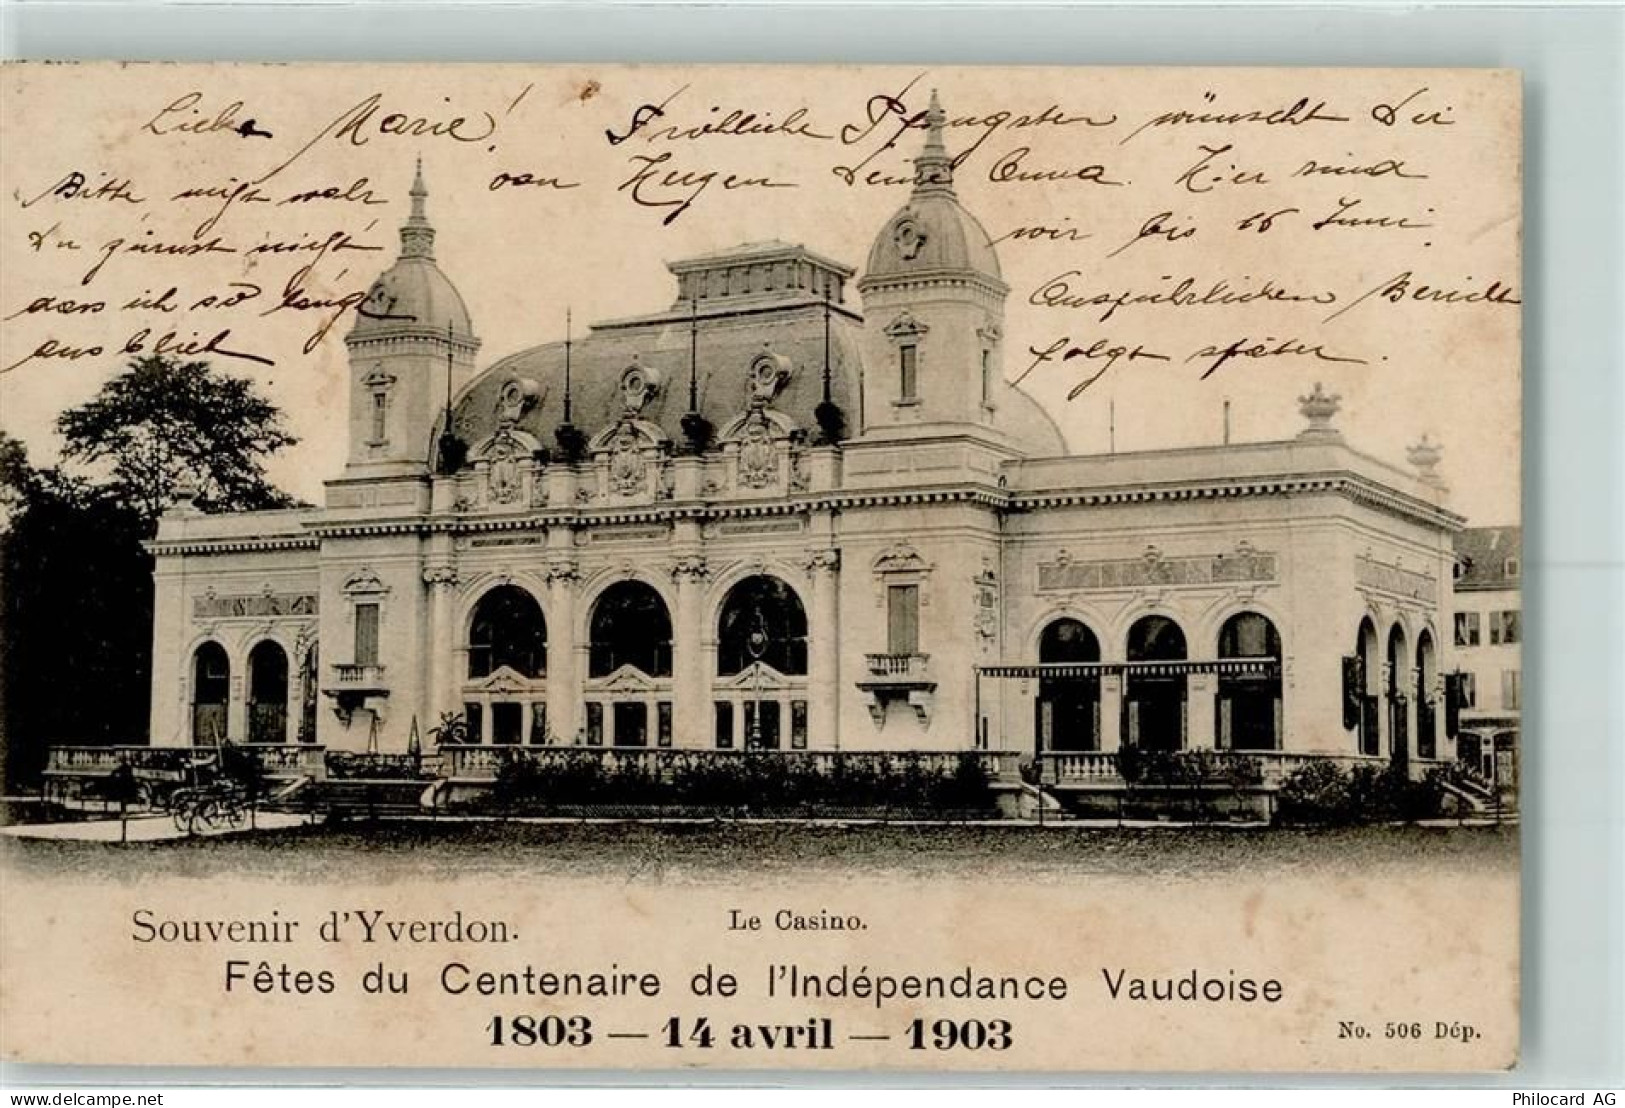 Liebe Marie! Fröhliche Pfingsten wünscht Dir
von Herzen Deine Emma. Hier sind
wir bis 16 Juni.
Ausführlichen Bericht
folgt später.
Bitte nicht wahr
Du zürnst nicht
dass ich so lange
aus blieb
Souvenir d'Yverdon.
Le Casino.
Fêtes du Centenaire de l'Indépendance Vaudoise
1803 — 14 avril — 1903
No. 506 Dép.
www.delcampe.net
Philocard AG